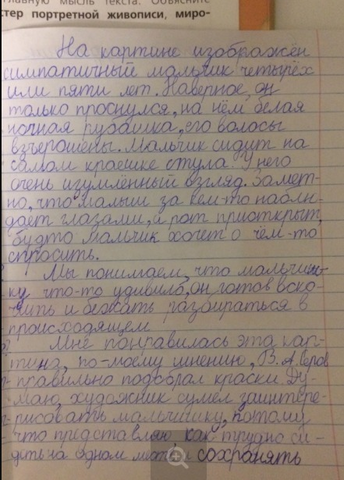 главную мысль текста. Объясните
стер портретной живописи, миро-
На картине изображён
симпатичный мальчик четырёх
или пяти лет. Наверное, он
только проснулся, на нём белая
ночная рубашка, его волосы
взъерошены. Мальчик сидит на
самом краешке стула. У него
очень изумлённый взгляд. Замет-
но, что малыш за кем-то наблю-
дает глазами, а рот приоткрыт,
будто мальчик хочет о чём-то
спросить.
Мы понимаем, что мальчиш-
ку что-то удивило, он готов вско-
чить и бежать разбираться в
происходящем
Мне понравилась эта кар-
тина, по-моему мнению, В.А.Серов
правильно подобрал краски. Ду-
маю, художник сумел заинтере-
рисовать мальчишку, потому
что представляю, как трудно си-
деть на одном месте, сохранять